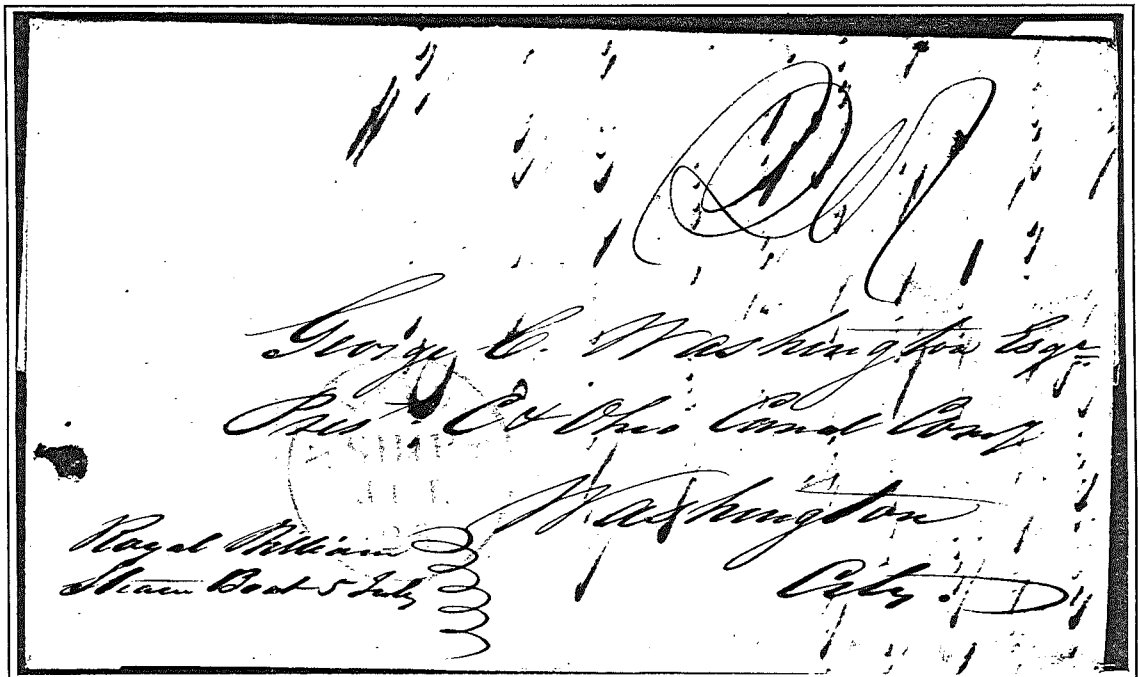 George C. Washington Esqr
Pres C & Ohio Canal Comy
Washington
City. D
Royal William
Steam Boat 5 July